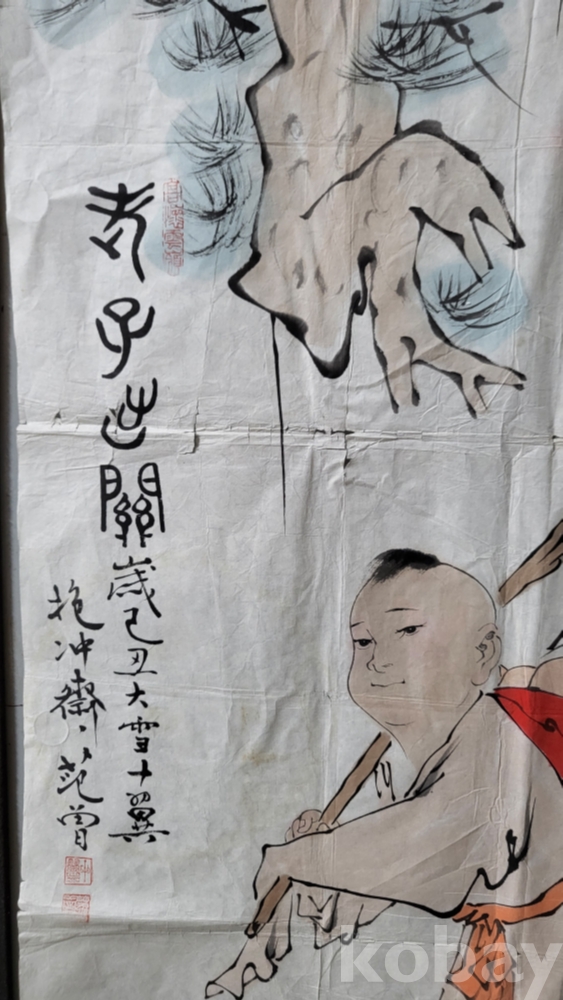 老子出關
歲己丑大雪十翼
抱冲齋、范曾
kobay